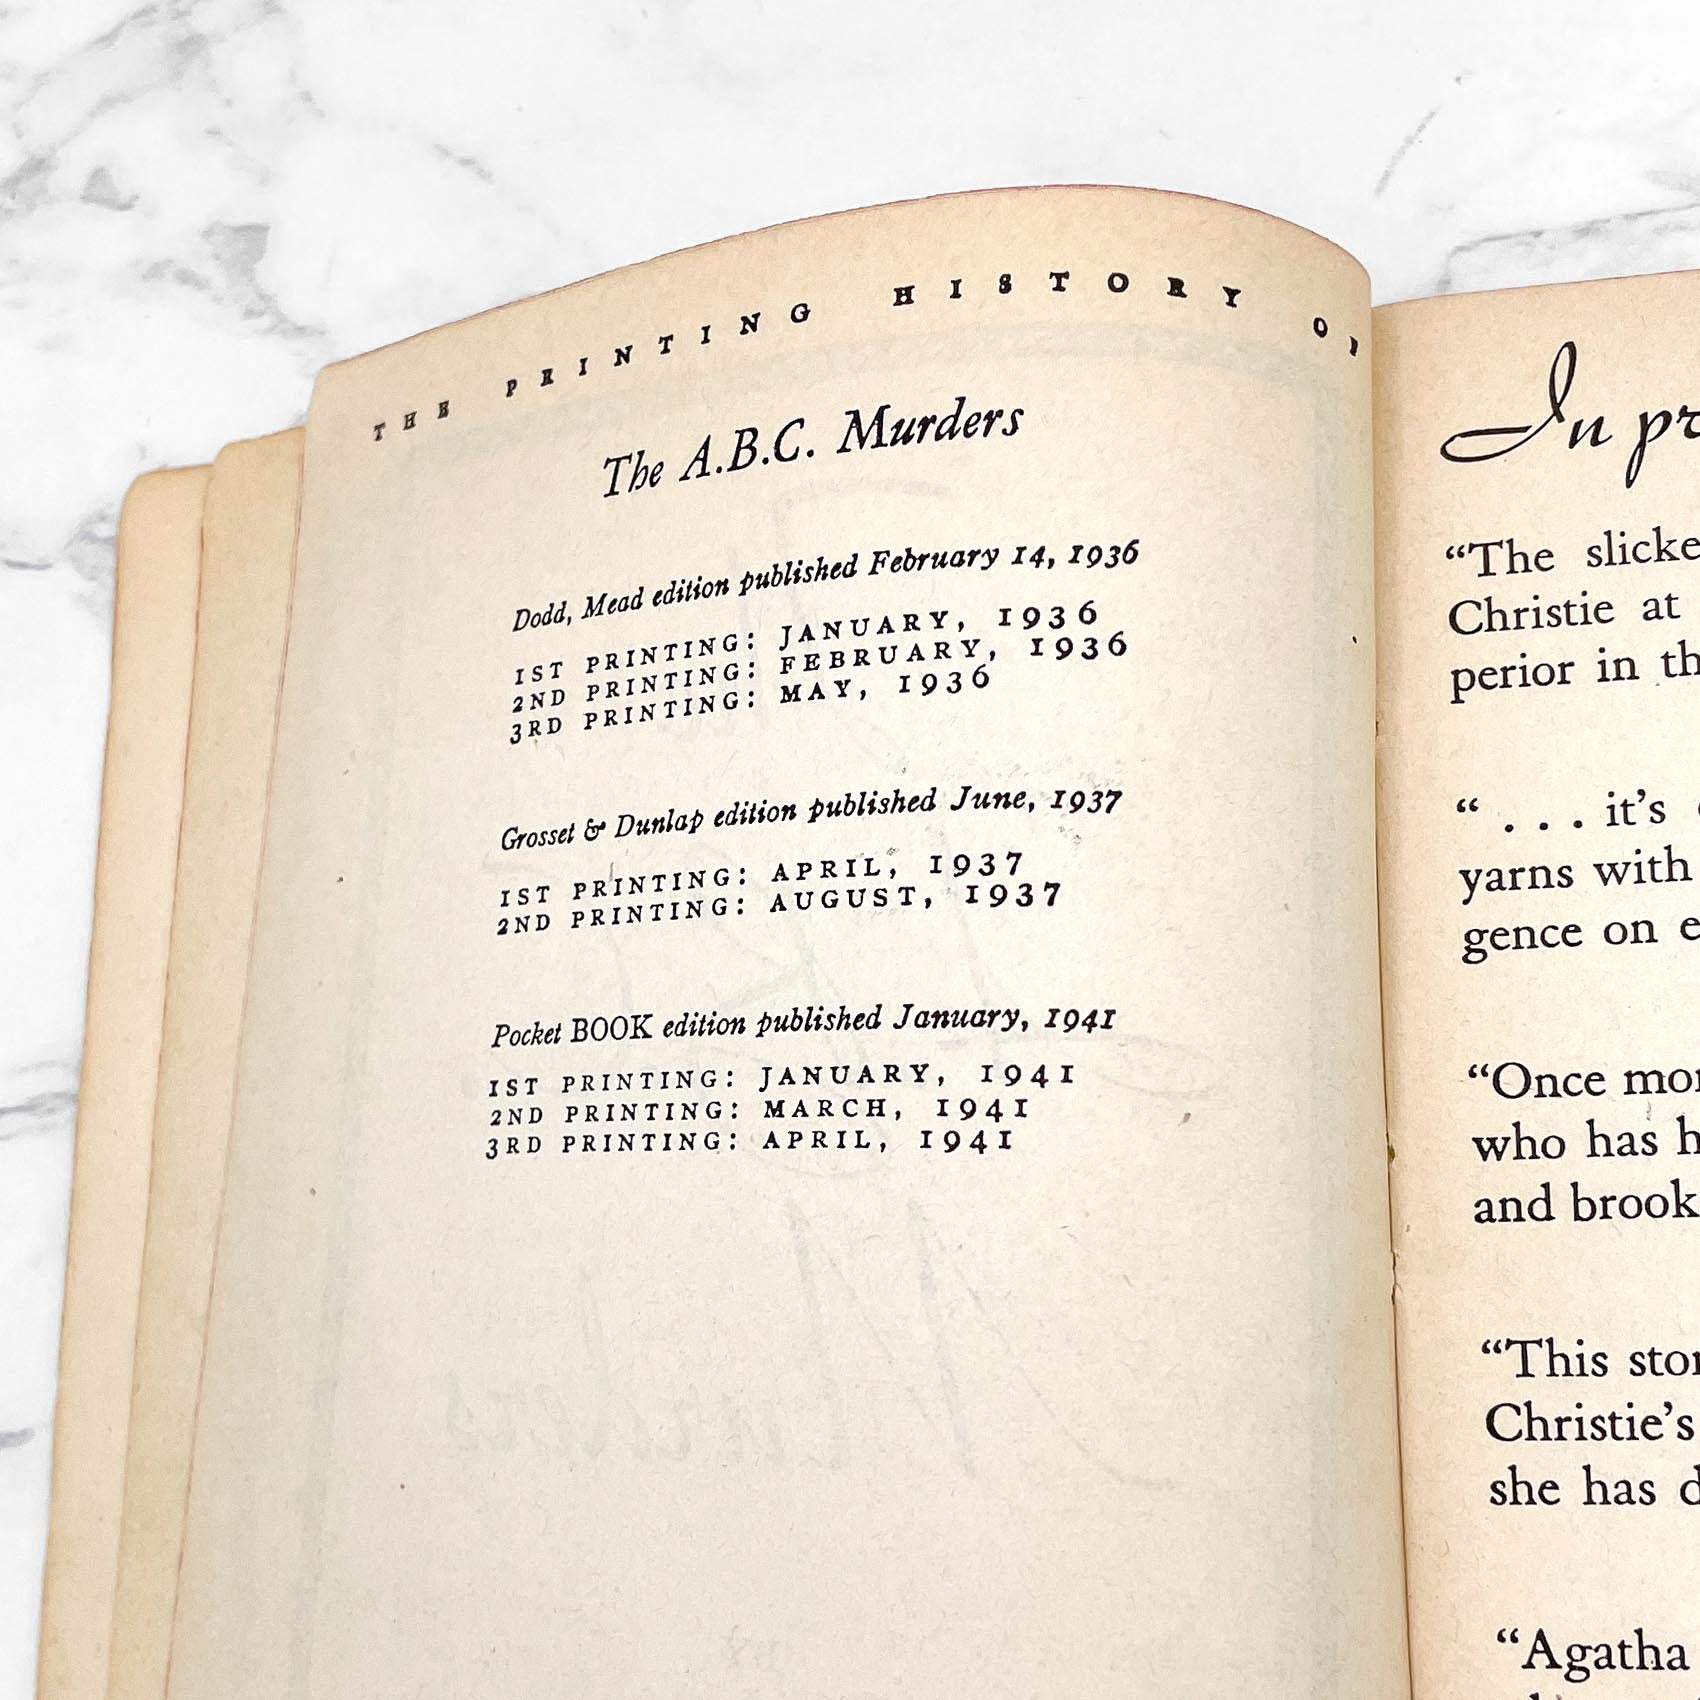 THE PRINTING HISTORY
The A.B.C. Murders
Dodd, Mead edition published February 14, 1936
1ST PRINTING: JANUARY, 1936
2ND PRINTING: FEBRUARY, 1936
3RD PRINTING: MAY, 1936
Grosset & Dunlap edition published June, 1937
1ST PRINTING: APRIL, 1937
2ND PRINTING: AUGUST, 1937
Pocket BOOK edition published January, 1941
1ST PRINTING: JANUARY, 1941
2ND PRINTING: MARCH, 1941
3RD PRINTING: APRIL, 1941
In
“The
Christie at
perior in
“ . . . it’s
yarns with
gence on
“Once
who has
and
“This
Christie’s
she has
“Agatha